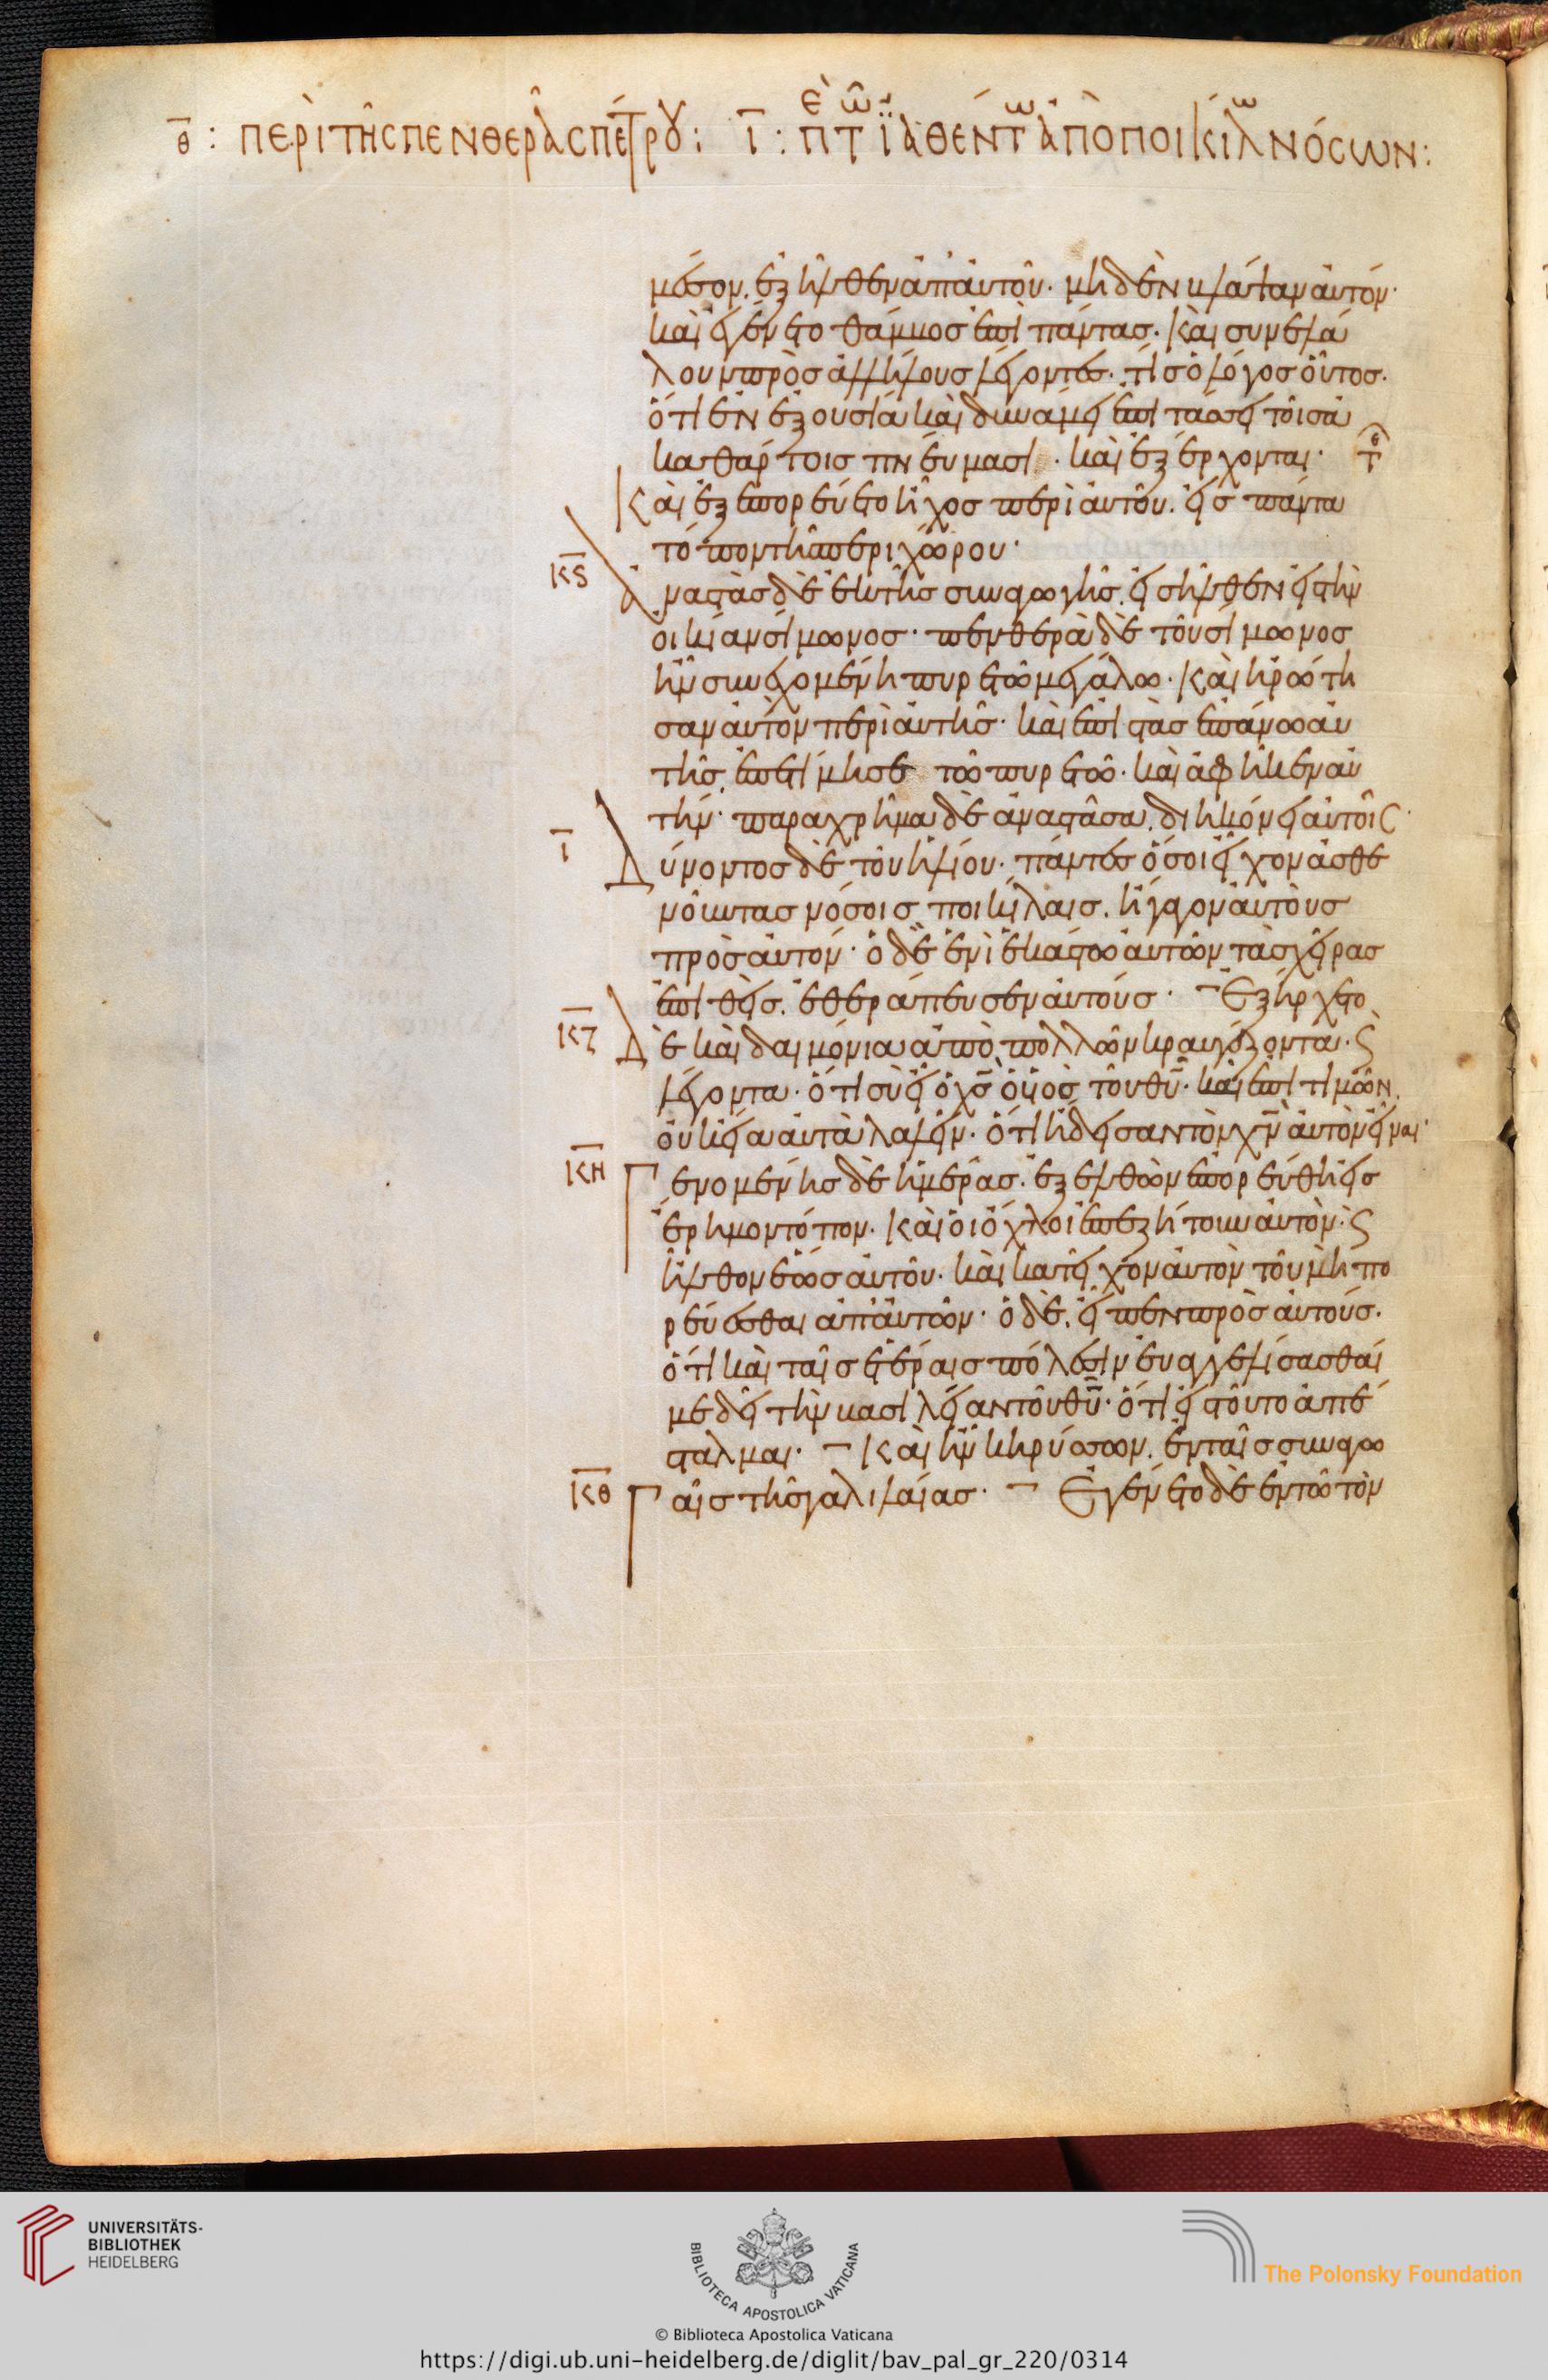 θ : περὶ τῆς πενθερᾶς πέτρου : ι : π τ ἰαθέντ ἀπὸ ποικίλ νόσων :
μέσον. ἐξῆλθεν ἀπ' αὐτοῦ· μηδὲν βλάψαν αὐτόν·
καὶ ἐγένετο θάμβος ἐπὶ πάντας· καὶ συνελά
λουν πρὸς ἀλλήλους λέγοντες· τίς ὁ λόγος οὗτος·
ὅτι ἐν ἐξουσία καὶ δυνάμει ἐπιτάσσει τοῖς ἀ
καθάρτοις πνεύμασι · καὶ ἐξέρχονται·
Καὶ ἐξεπορεύετο ἦχος περὶ αὐτοῦ. εἰς πάντα
τόπον τῆς περιχώρου·
κϛ
ἀναστὰς δὲ ἐκ τῆς συναγωγῆς. εἰσῆλθεν εἰς τὴν
οἰκίαν σίμωνος· πενθερὰ δὲ τοῦ σίμωνος
ἦν συνεχομένη πυρετῶ μεγάλω· καὶ ἠρώτη
σαν αὐτὸν περὶ αὐτῆς· καὶ ἐπιστὰς ἐπάνω αὐ
τῆς, ἐπετίμησε τῶ πυρετῶ· καὶ ἀφῆκεν αὐ
τήν· παραχρῆμα δὲ ἀναστᾶσα. διηκόνει αὐτοῖς·
ι
Δύνοντος δὲ τοῦ ἡλίου· πάντες ὅσοι εἶχον ἀσθε
νοῦντας νόσοις ποικίλαις. ἤγαγον αὐτοὺς
πρὸς αὐτόν· ὁ δὲ ἑνὶ ἑκάστω αὐτῶν τὰς χεῖρας
ἐπιθεὶς. ἐθεράπευσεν αὐτούς· Ἐξήρχετο
κζ
Δὲ καὶ δαιμόνια ἀπὸ πολλῶν κραυγάζοντα· ϛ
λέγοντα· ὅτι σὺ εἶ ὁ χς ὁ υἱὸς τοῦ θυ· καὶ ἐπιτιμῶν.
οὐκ εἴα αὐτὰ λαλεῖν· ὅτι ἤδεισαν τὸν χν αὐτὸν εἶναι·
κη
Γενομένης δὲ ἡμέρας. ἐξελθὼν ἐπορεύθη εἰς
ἔρημον τόπον. καὶ οἱ ὄχλοι ἐπεζήτουν αὐτὸν· ϛ
ἦλθον ἕως αὐτοῦ· καὶ κατεῖχον αὐτὸν τοῦ μὴ πο
ρεύεσθαι ἀπ' αὐτῶν· ὁ δὲ. εἶπεν πρὸς αὐτούς·
ὅτι καὶ ταῖς ἑτέραις πόλεσιν εὐαγγελίσασθαί
με δεῖ τὴν βασιλείαν τοῦ θυ· ὅτι εἰς τοῦτο ἀπέ
σταλμαι· Καὶ ἦν κηρύσσων. ἐν ταῖς συναγω
κθ
Γαῖς τῆς γαλιλαίας· Ἐγένετο δὲ ἐν τῶ τὸν
UNIVERSITÄTS-
BIBLIOTHEK
HEIDELBERG
BIBLIOTECA APOSTOLICA VATICANA
The Polonsky Foundation
© Biblioteca Apostolica Vaticana
https://digi.ub.uni-heidelberg.de/diglit/bav_pal_gr_220/0314